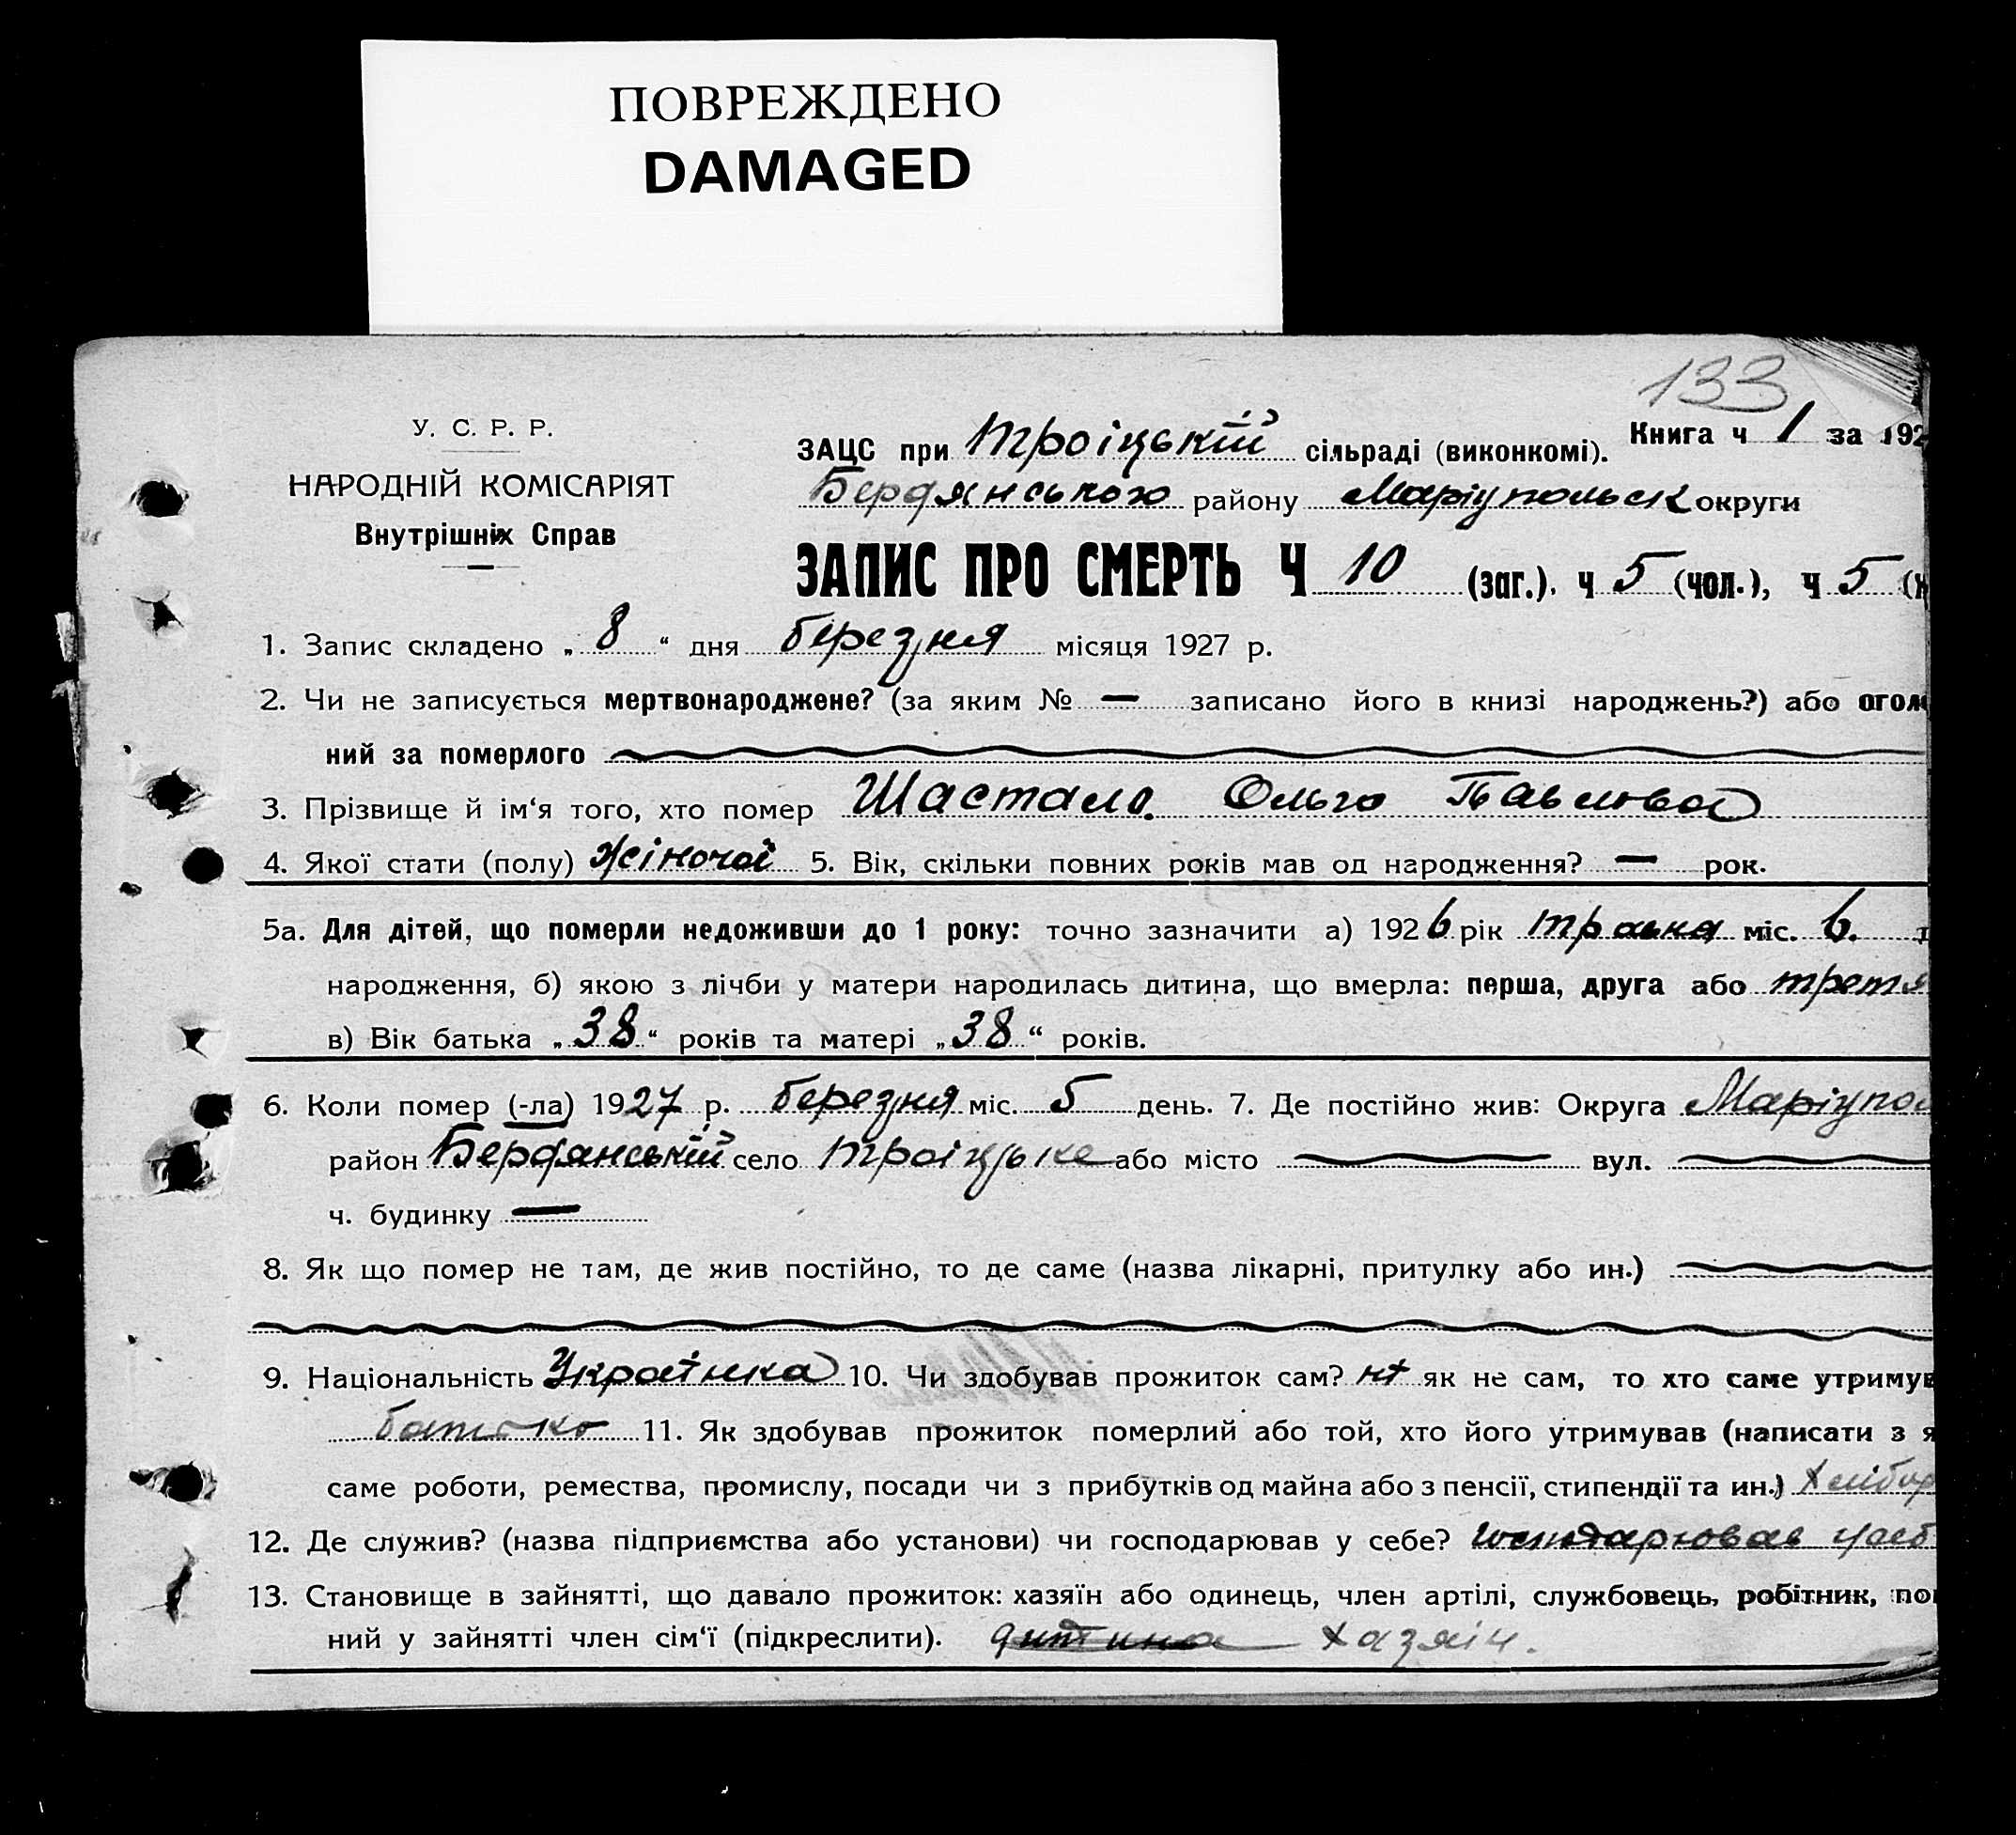 ПОВРЕЖДЕНО
DAMAGED
133
У. С. Р. Р.
НАРОДНІЙ КОМІСАРІЯТ
Внутрішніх Справ
Книга ч 1 за 192
ЗАЦС при Троіцькій сільраді (виконкомі).
Бердянського району Маріупольск округи
ЗАПИС ПРО СМЕРТЬ Ч 10 (заг.). ч 5 (чол.), ч 5 (ж
1. Запис складено „ 8 “ дня березня місяця 1927 р.
2. Чи не записується мертвонароджене? (за яким № — записано його в книзі народжень?) або огол
ний за померлого
3. Прізвище й ім‘я того, хто помер Шастало Ольга Павлова
4. Якої стати (полу) жіночої 5. Вік, скільки повних років мав од народження? — рок.
5а. Для дітей, що померли недоживши до 1 року: точно зазначити а) 1926 рік міс. 6.
народження, б) якою з лічби у матери народилась дитина, що вмерла: перша, друга або третя
в) Вік батька „ 38 “ років та матері „ 38 “ років.
6. Коли помер (-ла) 1927 р. березня міс. 5 день. 7. Де постійно жив: Округа Маріупол
район Бердянській село Троіцьке або місто — вул. —
ч. будинку —
8. Як що помер не там, де жив постійно, то де саме (назва лікарні, притулку або ин.)
9. Національність Українка 10. Чи здобував прожиток сам? ні як не сам, то хто саме утримув
батько 11. Як здобував прожиток померлий або той, хто його утримував (написати з я
саме роботи, ремества, промислу, посади чи з прибутків од майна або з пенсії, стипендії та ин.) Хлібор
12. Де служив? (назва підприємства або установи) чи господарював у себе?
13. Становище в зайнятті, що давало прожиток: хазяїн або одинець, член артілі, службовець, робітник, по
ний у зайнятті член сім‘ї (підкреслити). дитина хазяін.